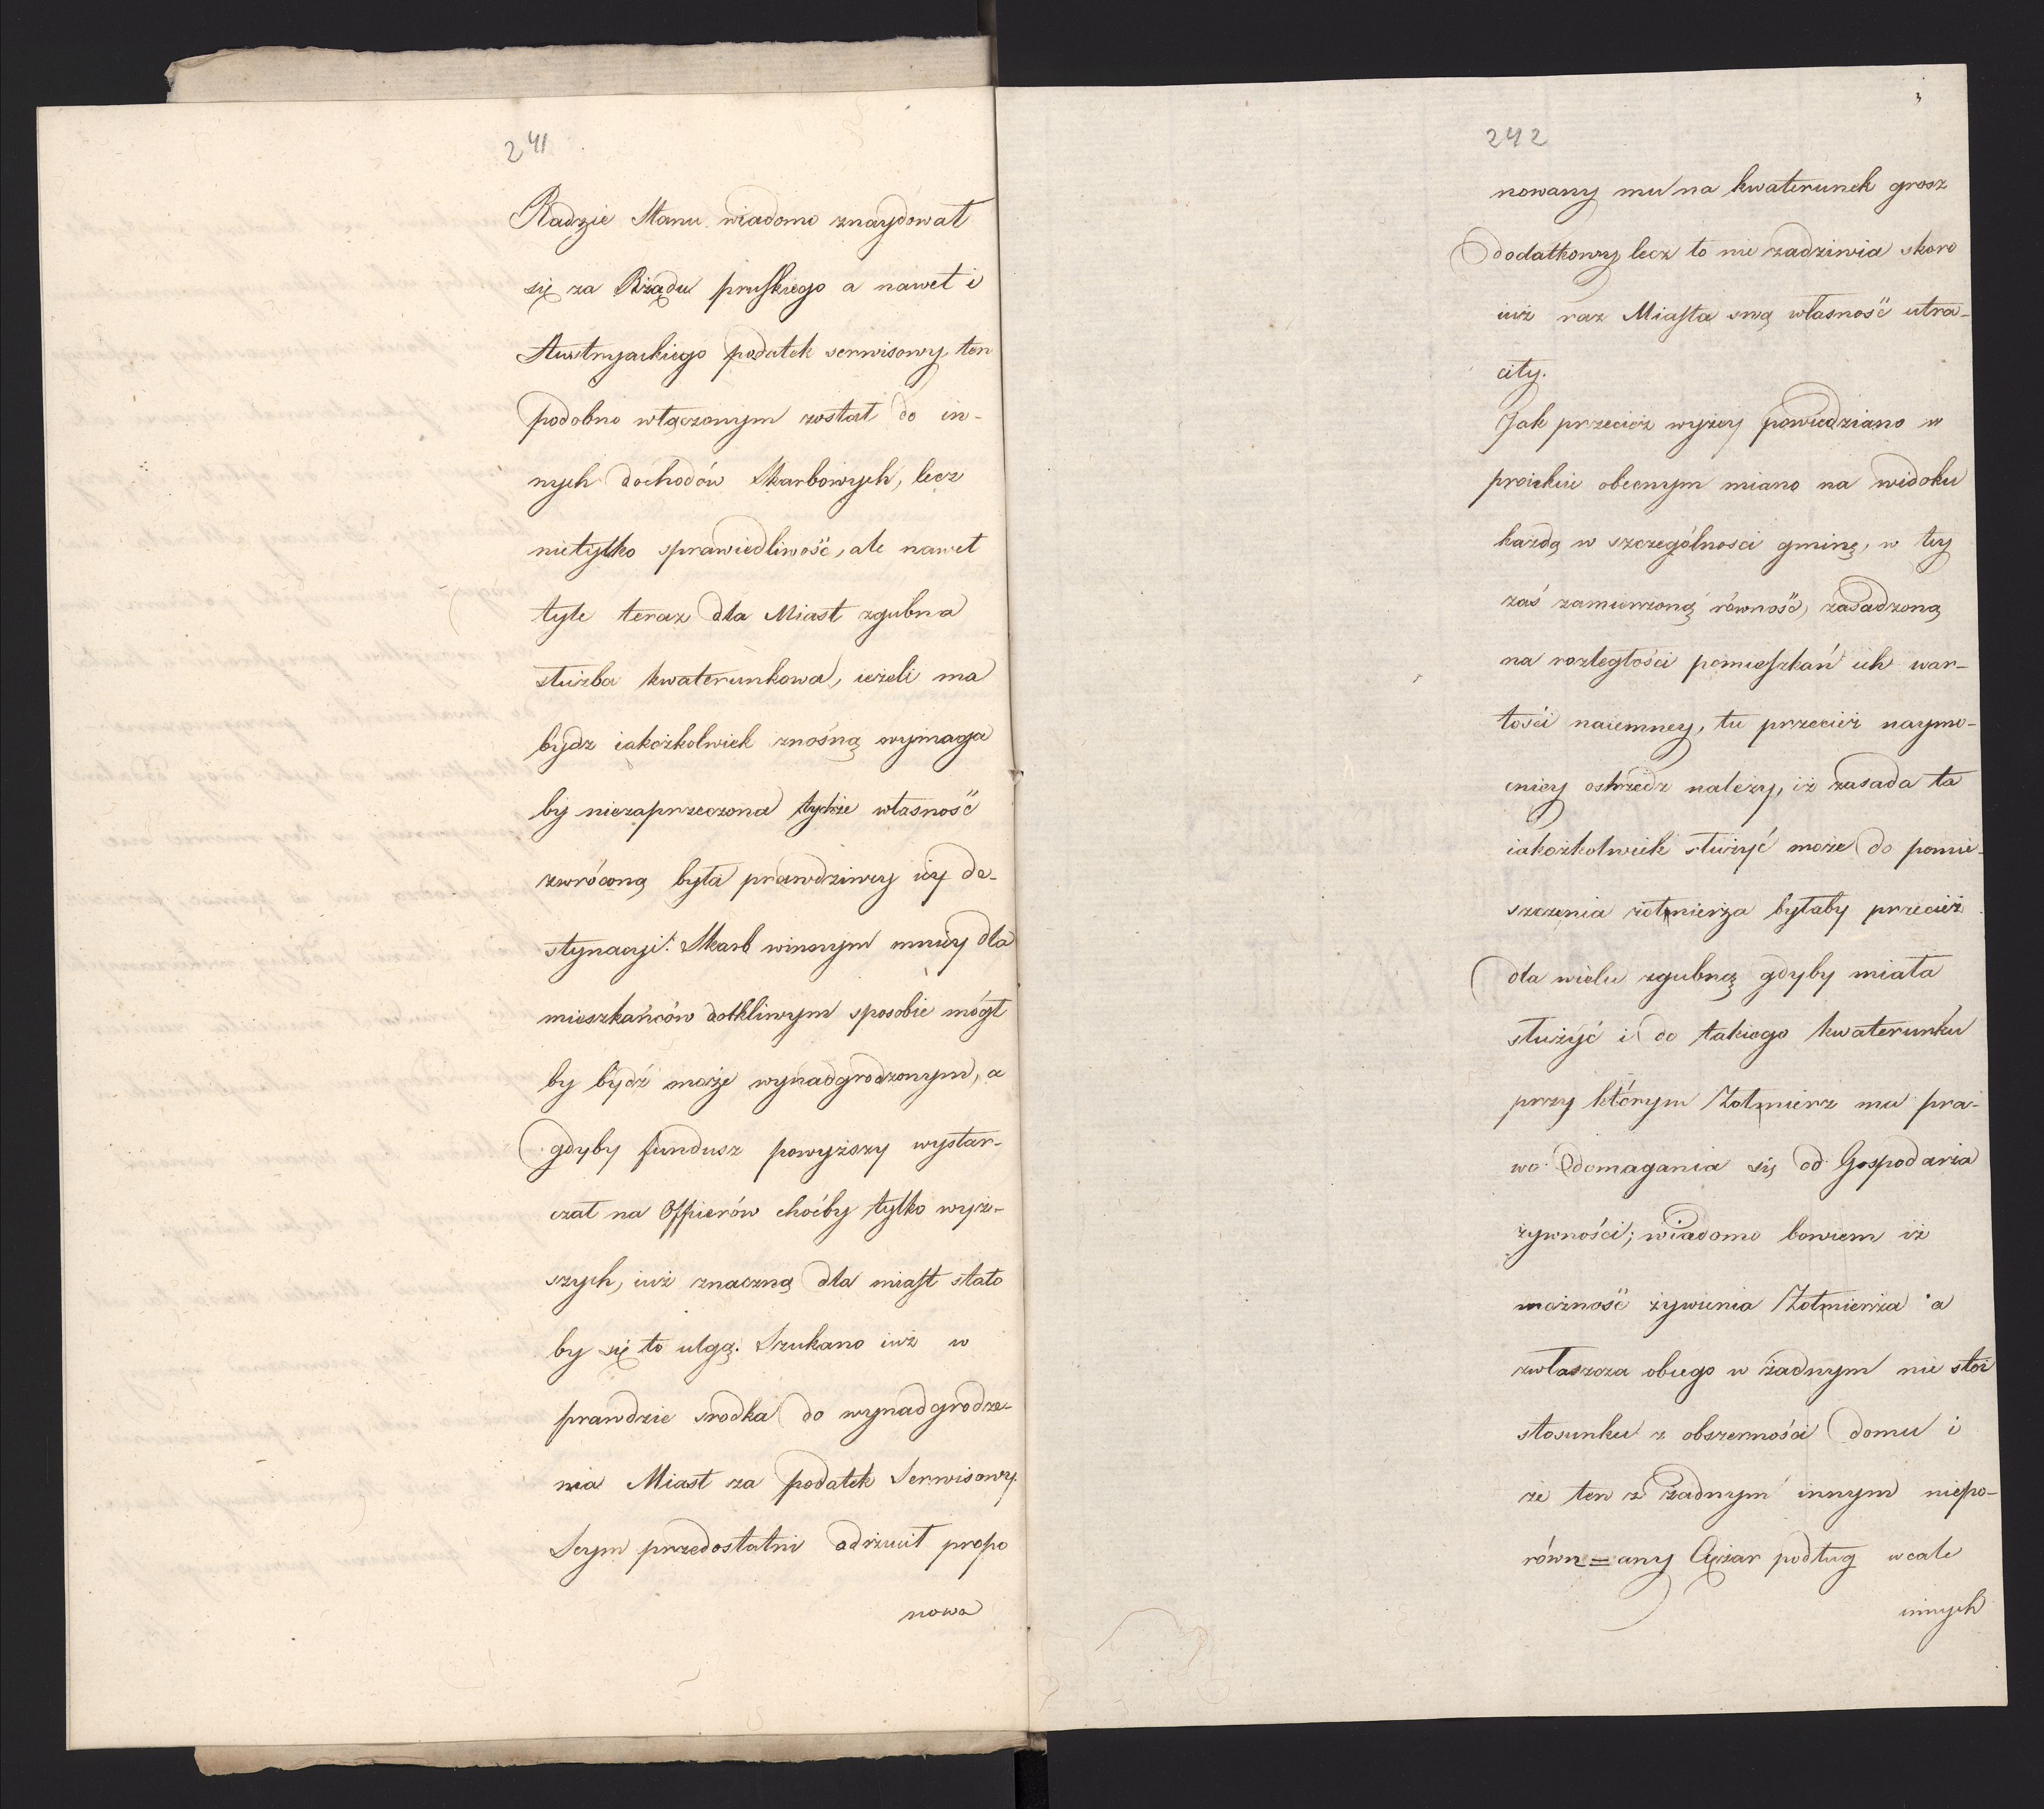 241
Radzie Stanu wiadomo znaydował
się za Rządu pruskiego a nawet i
Austryackiego podatek serwisowy, ten
podobno włączonym został do in-
nych dochodów Skarbowych, lecz
nietylko sprawiedliwość, ale nawet
tyle teraz dla Miast zgubna
służba kwaterunkowa, ieżeli ma
bydz iakożkolwiek znośną wymaga
by niezaprzeczona tychże własność
zwróconą była prawdziwey iey de-
stynacyi. Skarb winnym mniey dla
mieszkańców dotkliwym sposobie mógł
by bydź może wynadgrodzonym, a
gdyby fundusz powyższy wystar-
czał na Officerów choćby tylko wyż-
szych, iuż znaczną dla miast stało
by się to ulgą. Szukano iuż w
prawdzie srodka do wynadgrodze-
nia Miast za podatek Serwisowy
Seym przedostatni odrzucił propo
nowa
242
nowany mu na kwaterunek grosz
dodatkowy, lecz to nie zadziwia skoro
iuż raz Miasta swą własność utra-
ciły.
Jak przecież wyżey powiedziano w
proiekcie obecnym miano na widoku
każdą w szczególnosci gminę, w tey
zaś zamierzoną równość, zasadzoną
na rozległości pomieszkań ich war-
tości naiemney, tu przecież naymo-
cniey ostrzedz należy, iż zasada ta
iakożkolwiek służyć może do pomie-
szczenia żołnierza byłaby przecież
dla wielu zgubną gdyby miała
służyć i do takiego kwaterunku
przy którym Żołnierz ma pra-
wo domagania się od Gospodarza
żywności; wiadomo bowiem iż
możność żywienia Żołnierza a
zwłaszcza obcego w żadnym nie stoi
stosunku z obszernością domu i
że ten z żadnym innym niepo-
równ=any Ciężar podług wcale
innych